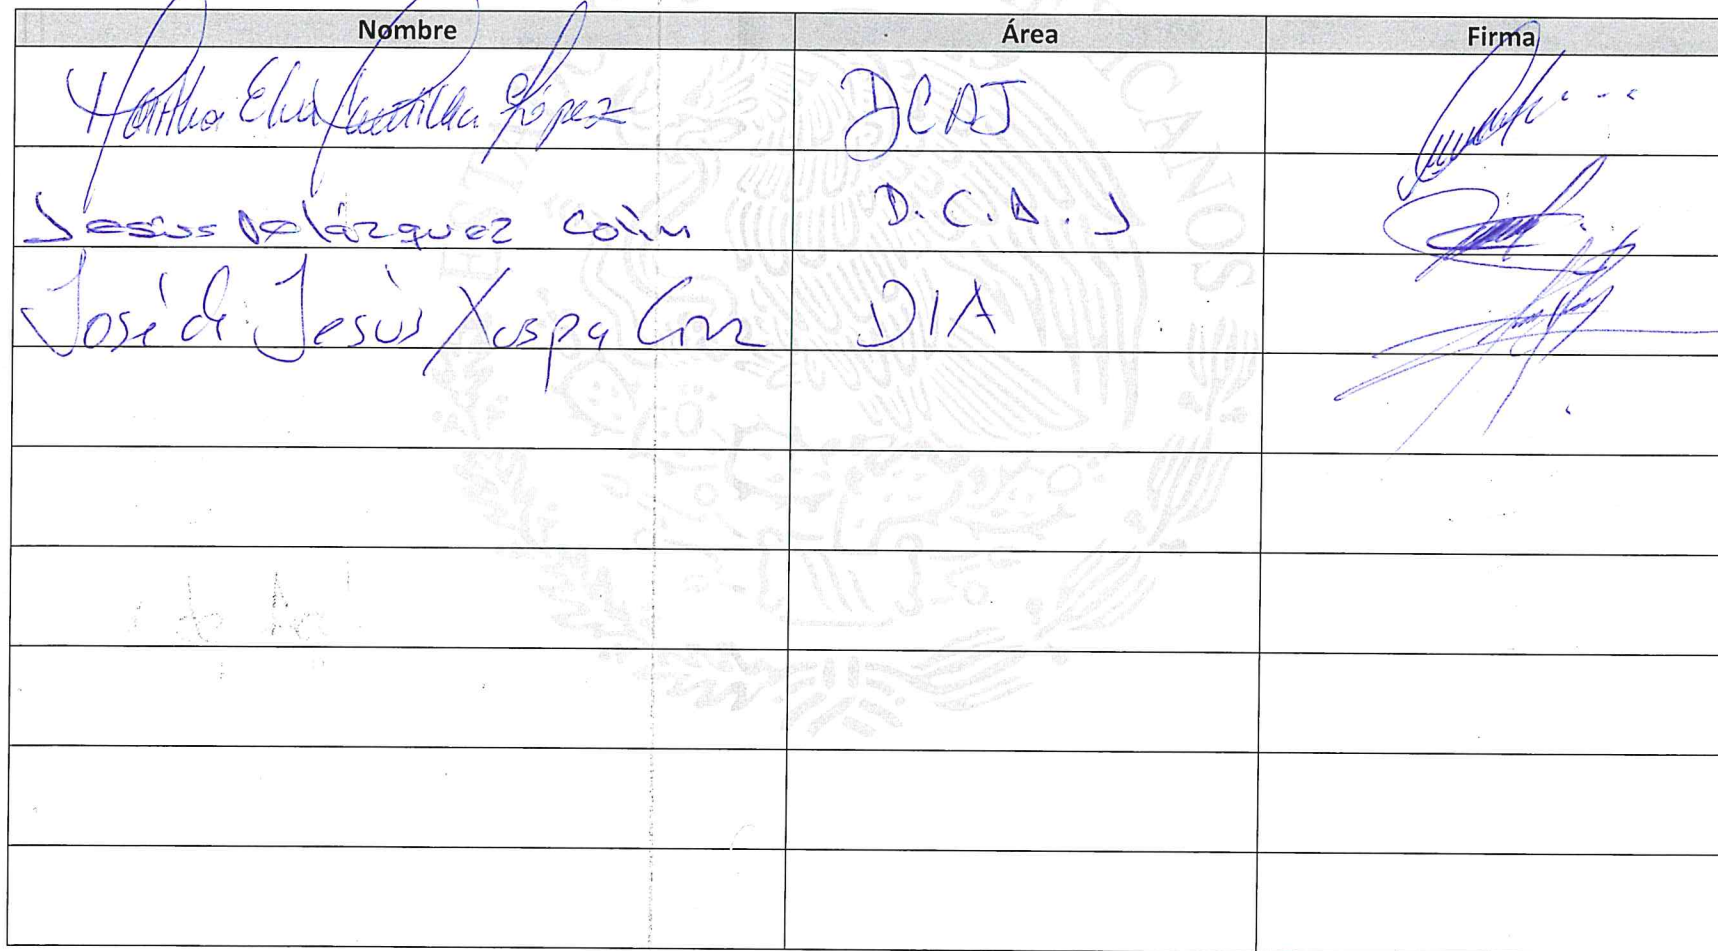 Nombre Área Firma
Martha Elva Castilla López DCAJ
Jesús Velázquez Colín D.C.A.J
José de Jesús Xuspa Cruz DIA